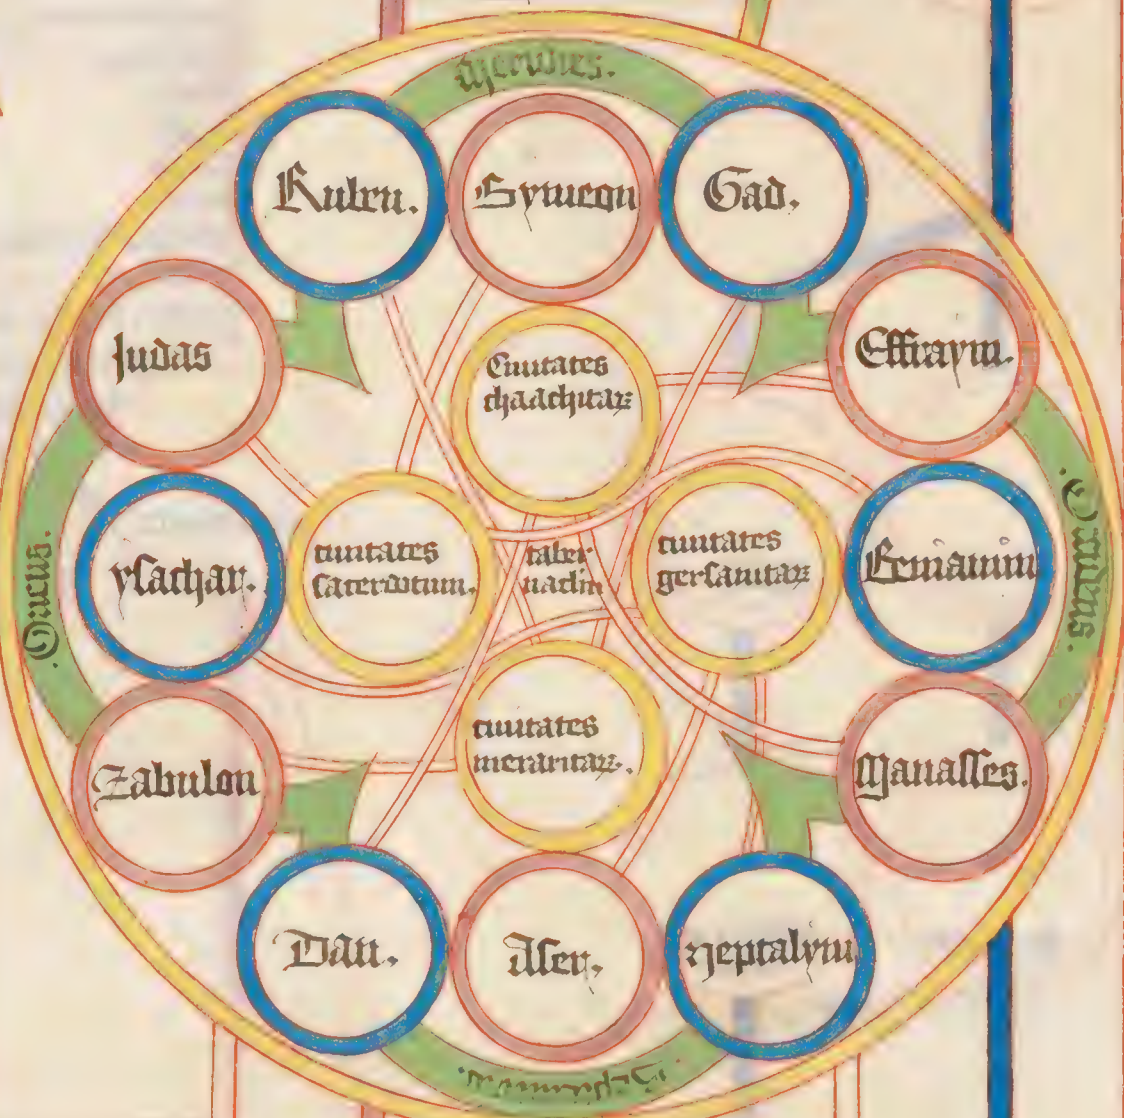 Meridies.
Ruben.
Symeon
Gad.
Judas
Effraym.
Ciuitates
chaachitaꝝ
.Oriens.
ysachar.
ciuitates
sacerdotum.
taber
naclm
ciuitates
gersanitaꝝ
Beniamin
.Occidens.
Zabulon
ciuitates
meraritaꝝ.
Manasses.
Dan.
Aser.
Neptalym